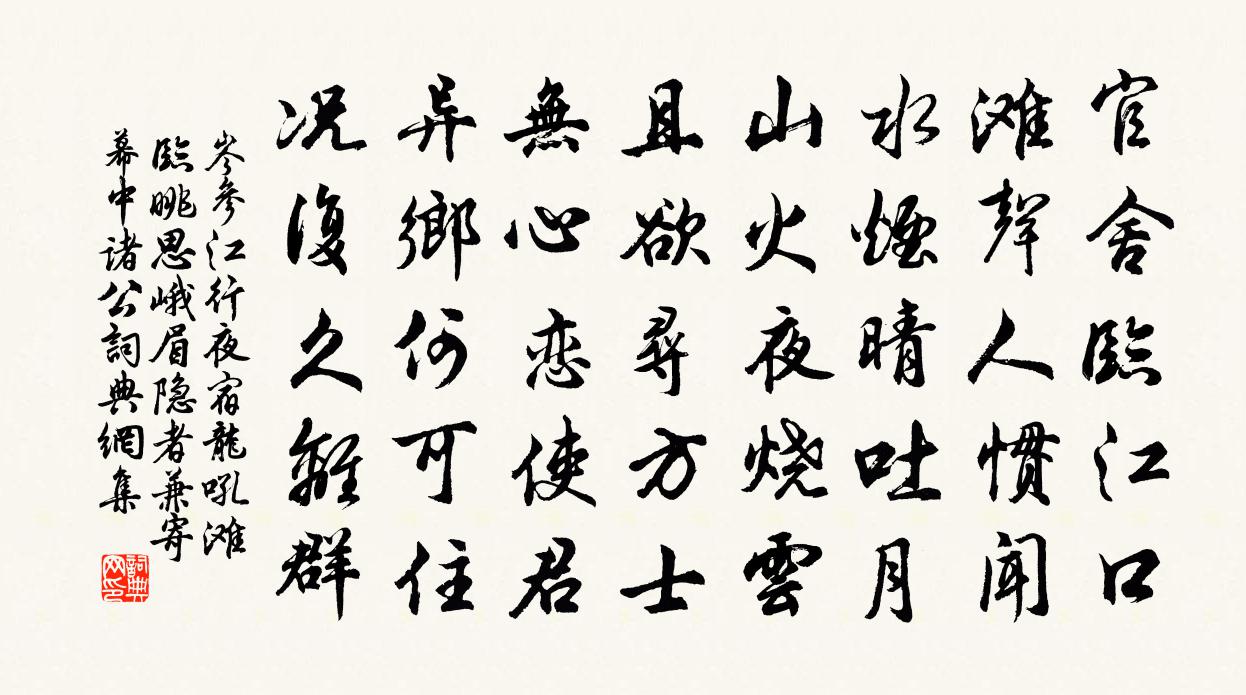 官舍臨江口
滩聲人慣聞
水煙晴吐月
山火夜烧雲
且欲尋方士
無心恋使君
异鄉何可住
况復久離群
岑參江行夜宿龍吼滩
臨眺思峨眉隐者兼寄
幕中诸公詞典網集
詞典网印